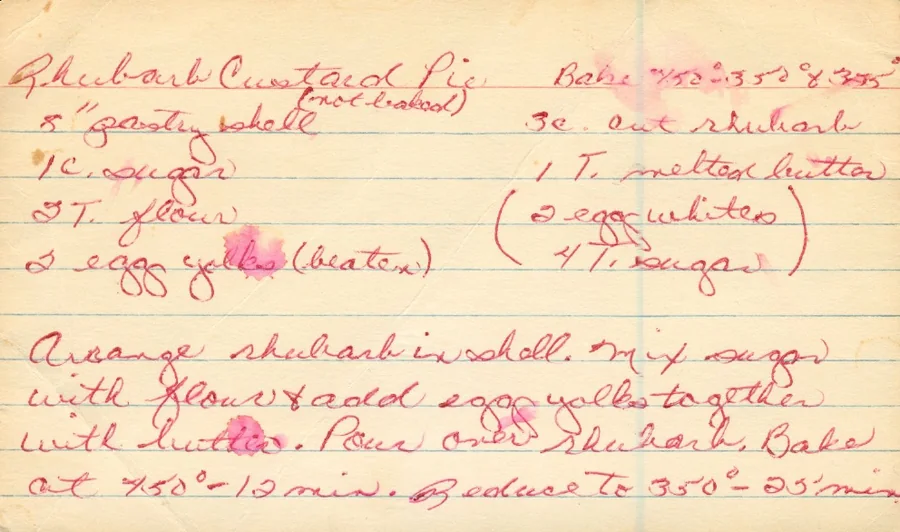 Rhubarb Custard Pie Bake 450°-350° & 335°
(not baked)
8" pastry shell 3c. cut rhubarb
1 c. sugar 1 T. melted butter
2 T. flour (2 egg whites
2 egg yolks (beaten) 4 T. sugar)
Arrange rhubarb in shell. Mix sugar
with flour & add egg yolks together
with butter. Pour over rhubarb. Bake
at 450° - 12 min. Reduce to 350° - 25 min